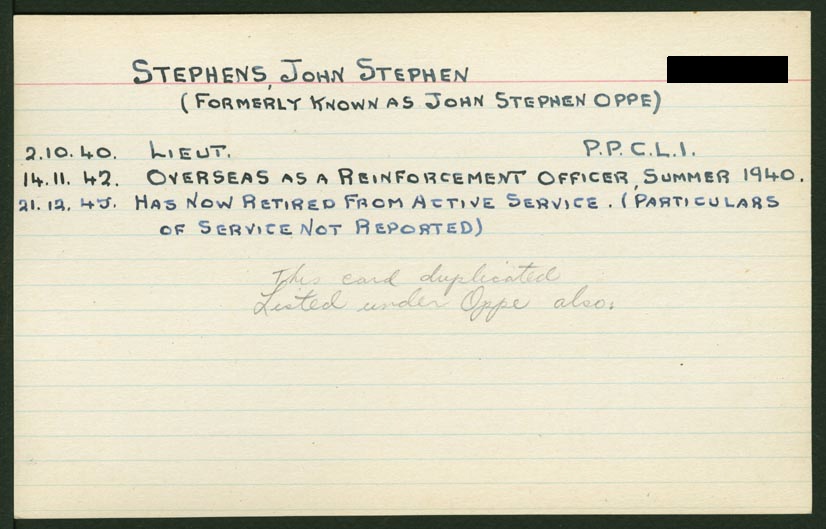 STEPHENS, JOHN STEPHEN
(FORMERLY KNOWN AS JOHN STEPHEN OPPE)
2.10.40. LIEUT. P.P.C.L.I.
14.11.42. OVERSEAS AS A REINFORCEMENT OFFICER, SUMMER 1940.
21.12.45. HAS NOW RETIRED FROM ACTIVE SERVICE. (PARTICULARS
OF SERVICE NOT REPORTED)
This card duplicated
Listed under Oppe also.